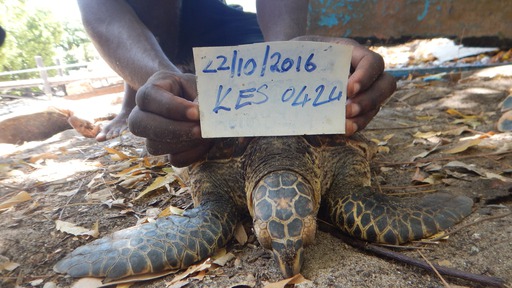 22/10/2016
KES 0424